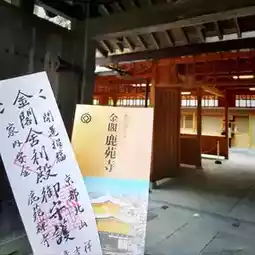 開運招福
金閣舎利殿御守護
家内安全
京都北山
鹿苑禅寺
金閣 鹿苑寺